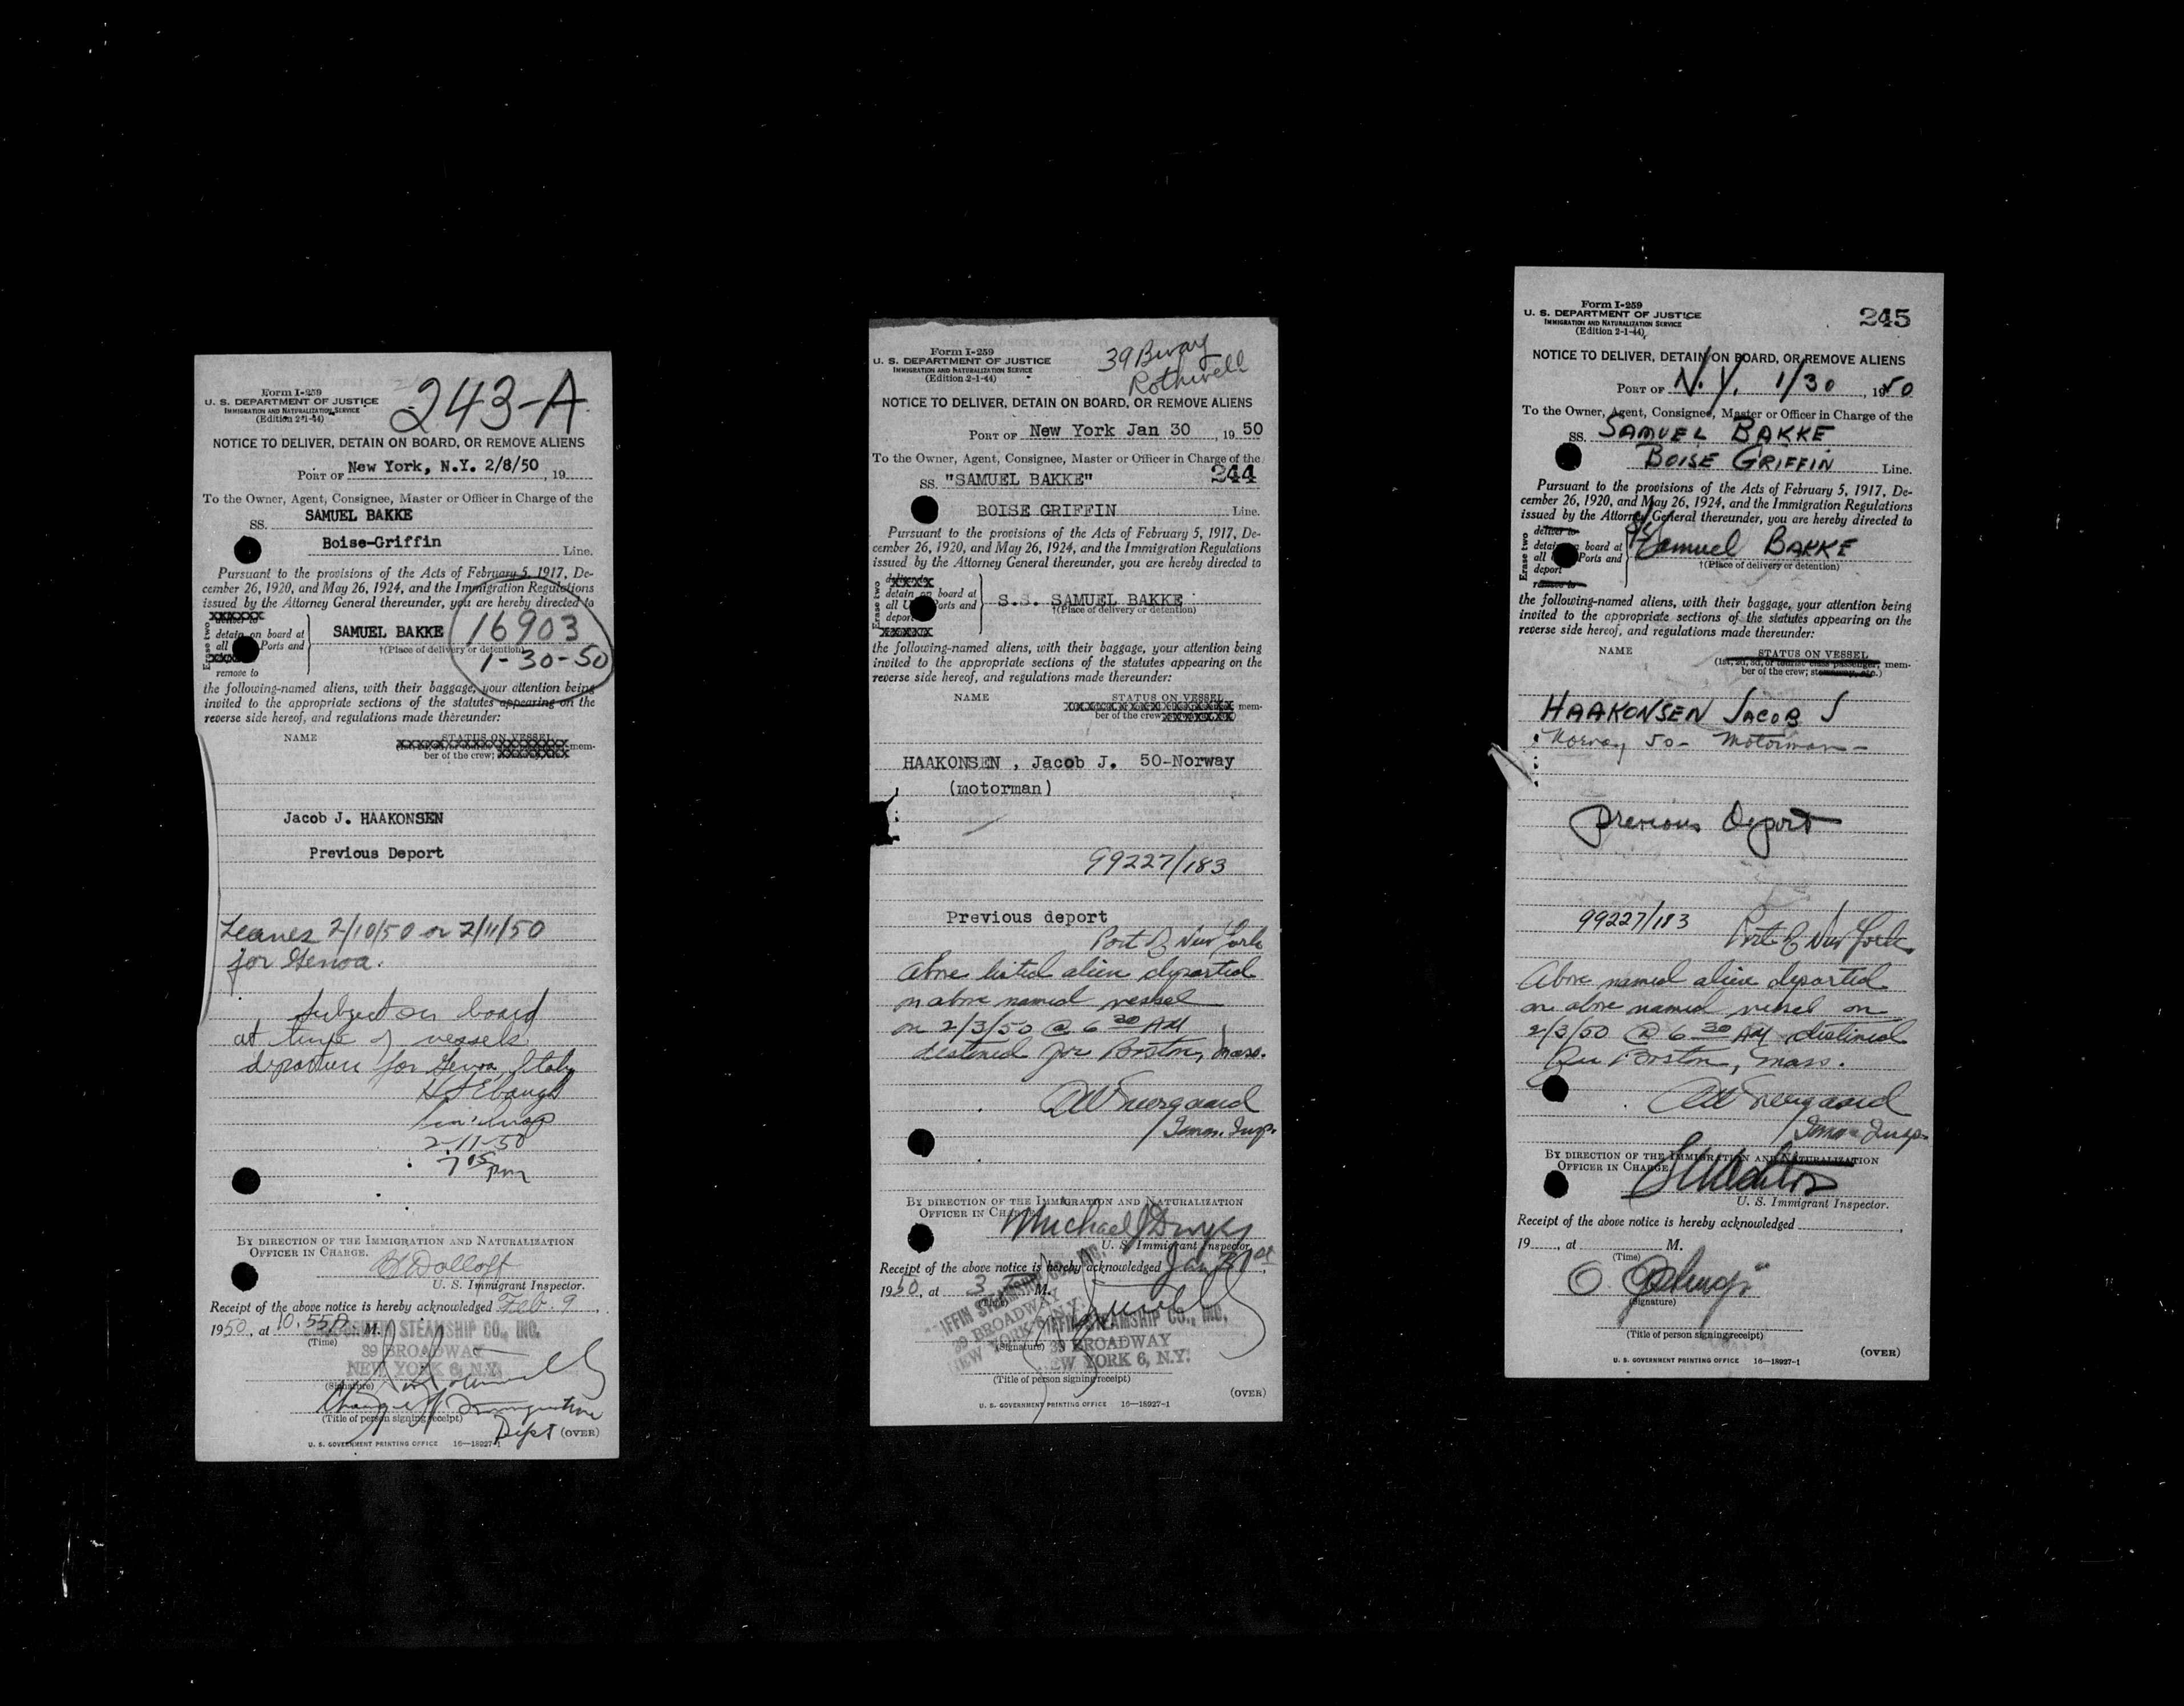 Form I-259
U. S. DEPARTMENT OF JUSTICE
IMMIGRATION AND NATURALIZATION SERVICE
(Edition 2-1-44)
243-A
NOTICE TO DELIVER, DETAIN ON BOARD, OR REMOVE ALIENS
PORT OF New York, N.Y. 2/8/50, 19
To the Owner, Agent, Consignee, Master or Officer in Charge of the
SS. SAMUEL BAKKE
Boise-Griffin Line.
Pursuant to the provisions of the Acts of February 5, 1917, De-
cember 26, 1920, and May 26, 1924, and the Immigration Regulations
issued by the Attorney General thereunder, you are hereby directed to
Erase two
detain on board at
all Ports and
remove to
SAMUEL BAKKE
†(Place of delivery or detention)
16903
1-30-50
the following-named aliens, with their baggage, your attention being
invited to the appropriate sections of the statutes appearing on the
reverse side hereof, and regulations made thereunder:
NAME STATUS ON VESSEL
mem-
ber of the crew;
Jacob J. HAAKONSEN
Previous Deport
Leaves 2/10/50 or 2/11/50
for Genoa.
Subject on board
at time of vessels
departure for Genoa, Italy
H S Ebaugh
2-11-50
7 05 pm
BY DIRECTION OF THE IMMIGRATION AND NATURALIZATION
OFFICER IN CHARGE.
Dolloff
U. S. Immigrant Inspector.
Receipt of the above notice is hereby acknowledged Feb. 9,
1950, at 10.55A. M.
(Time)
STEAMSHIP CO., INC.
39 BROADWAY
NEW YORK 6, N.Y.
(Signature)
Dept
(Title of person signing receipt)
(OVER)
U. S. GOVERNMENT PRINTING OFFICE 16—18927-1
Form I-259
U. S. DEPARTMENT OF JUSTICE
IMMIGRATION AND NATURALIZATION SERVICE
(Edition 2-1-44)
39 Bway
Rothwell
NOTICE TO DELIVER, DETAIN ON BOARD, OR REMOVE ALIENS
PORT OF New York Jan 30, 19 50
To the Owner, Agent, Consignee, Master or Officer in Charge of the
SS. "SAMUEL BAKKE" 244
BOISE GRIFFIN Line.
Pursuant to the provisions of the Acts of February 5, 1917, De-
cember 26, 1920, and May 26, 1924, and the Immigration Regulations
issued by the Attorney General thereunder, you are hereby directed to
Erase two
detain on board at
all U Ports and
deport
S.S. SAMUEL BAKKE
†(Place of delivery or detention)
the following-named aliens, with their baggage, your attention being
invited to the appropriate sections of the statutes appearing on the
reverse side hereof, and regulations made thereunder:
NAME STATUS ON VESSEL
mem-
ber of the crew
HAAKONSEN , Jacob J. 50-Norway
(motorman)
99227/183
Previous deport
Port of New York
Above listed alien departed
on above named vessel
on 2/3/50 @ 6 30 AM
destined for Boston, Mass.
Imm. Insp.
BY DIRECTION OF THE IMMIGRATION AND NATURALIZATION
OFFICER IN CHARGE
Michael J Dwyer
U. S. Immigrant Inspector
Receipt of the above notice is hereby acknowledged Jan 31st,
1950, at 3 M.
IFFIN STEAMSHIP CO., INC.
39 BROADWAY
NEW YORK 6, N.Y.
IFFIN STEAMSHIP CO., INC.
(Signature) 39 BROADWAY
NEW YORK 6, N.Y.
(Title of person signing receipt)
(OVER)
U. S. GOVERNMENT PRINTING OFFICE 16—18927-1
Form I-259
U. S. DEPARTMENT OF JUSTICE
IMMIGRATION AND NATURALIZATION SERVICE
(Edition 2-1-44)
245
NOTICE TO DELIVER, DETAIN ON BOARD, OR REMOVE ALIENS
PORT OF N.Y. 1/30, 1950
To the Owner, Agent, Consignee, Master or Officer in Charge of the
SS. SAMUEL BAKKE
BOISE GRIFFIN Line.
Pursuant to the provisions of the Acts of February 5, 1917, De-
cember 26, 1920, and May 26, 1924, and the Immigration Regulations
issued by the Attorney General thereunder, you are hereby directed to
Erase two
deliver to
detain board at
all Ports and
deport
remove to
Samuel BAKKE
†(Place of delivery or detention)
the following-named aliens, with their baggage, your attention being
invited to the appropriate sections of the statutes appearing on the
reverse side hereof, and regulations made thereunder:
NAME STATUS ON VESSEL
(1st, 2d, 3d, or tourist class passenger, mem-
ber of the crew; stowaway, etc.)
HAAKONSEN JACOB J
Norway 50- Motorman-
Previous Deport
99227/183 Port of New York
Above named alien departed
on above named vessel on
2/3/50 @ 6 30 AM destined
for Boston, Mass.
Imm Insp.
BY DIRECTION OF THE IMMIGRATION AND NATURALIZATION
OFFICER IN CHARGE
U. S. Immigrant Inspector.
Receipt of the above notice is hereby acknowledged ,
19 , at M.
(Time)
(Signature)
(Title of person signing receipt)
(OVER)
U. S. GOVERNMENT PRINTING OFFICE 16—18927-1